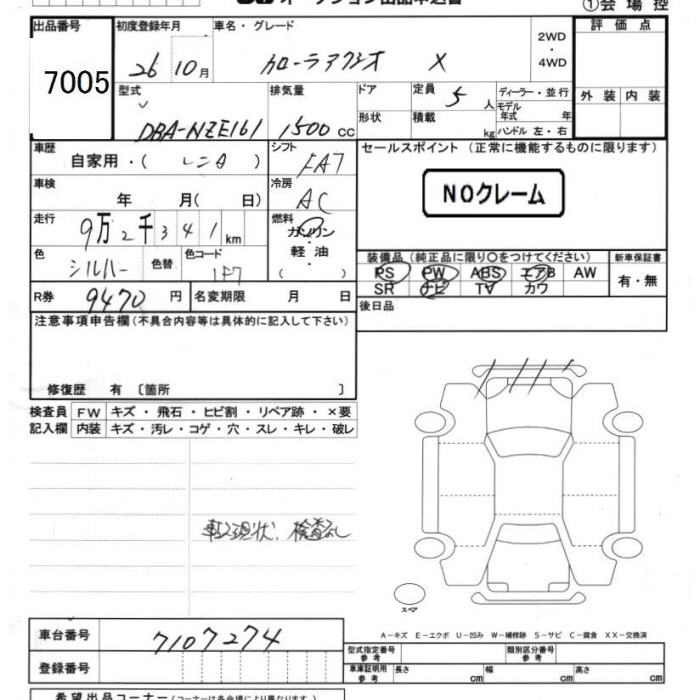 オークション出品申込書
①会場控
出品番号
7005
初度登録年月
26 10月
車名・グレード
カローラアクシオ X
2WD
・
4WD
評価点
外装 内装
型式
DBA-NZE161
排気量
1500 CC
ドア
形状
定員 5 人
積載 kg
ディーラー・並行
モデル年式 年
ハンドル 左・右
車歴
自家用・( レンタ )
シフト
FA7
セールスポイント (正常に機能するものに限ります)
NOクレーム
車検
年 月( 日)
冷房
AC
走行
9万2千341km
燃料
ガソリン
・
軽油
( )
色
シルバー
色替
色コード
1F7
装備品(純正品に限り〇をつけてください)
PS PW ABS エアB AW
SR ナビ TV カワ
新車保証書
有・無
R券 9470 円
名変期限 月 日
後日品
注意事項申告欄(不具合内容等は具体的に記入して下さい)
修復歴 有 〔箇所 〕
検査員記入欄
FW キズ・飛石・ヒビ割・リペア跡・×要
内装 キズ・汚レ・コゲ・穴・スレ・キレ・破レ
現状、検査なし
スペア
A-キズ E-エクボ U-凹み W-補修跡 S-サビ C-腐食 XX-交換済
車台番号 7107274
登録番号
型式指定番号 参考
類別区分番号 参考
車庫証明用 参考
長さ cm
幅 cm
高さ cm
希望出品コーナー(コーナーは各会場により異なります)